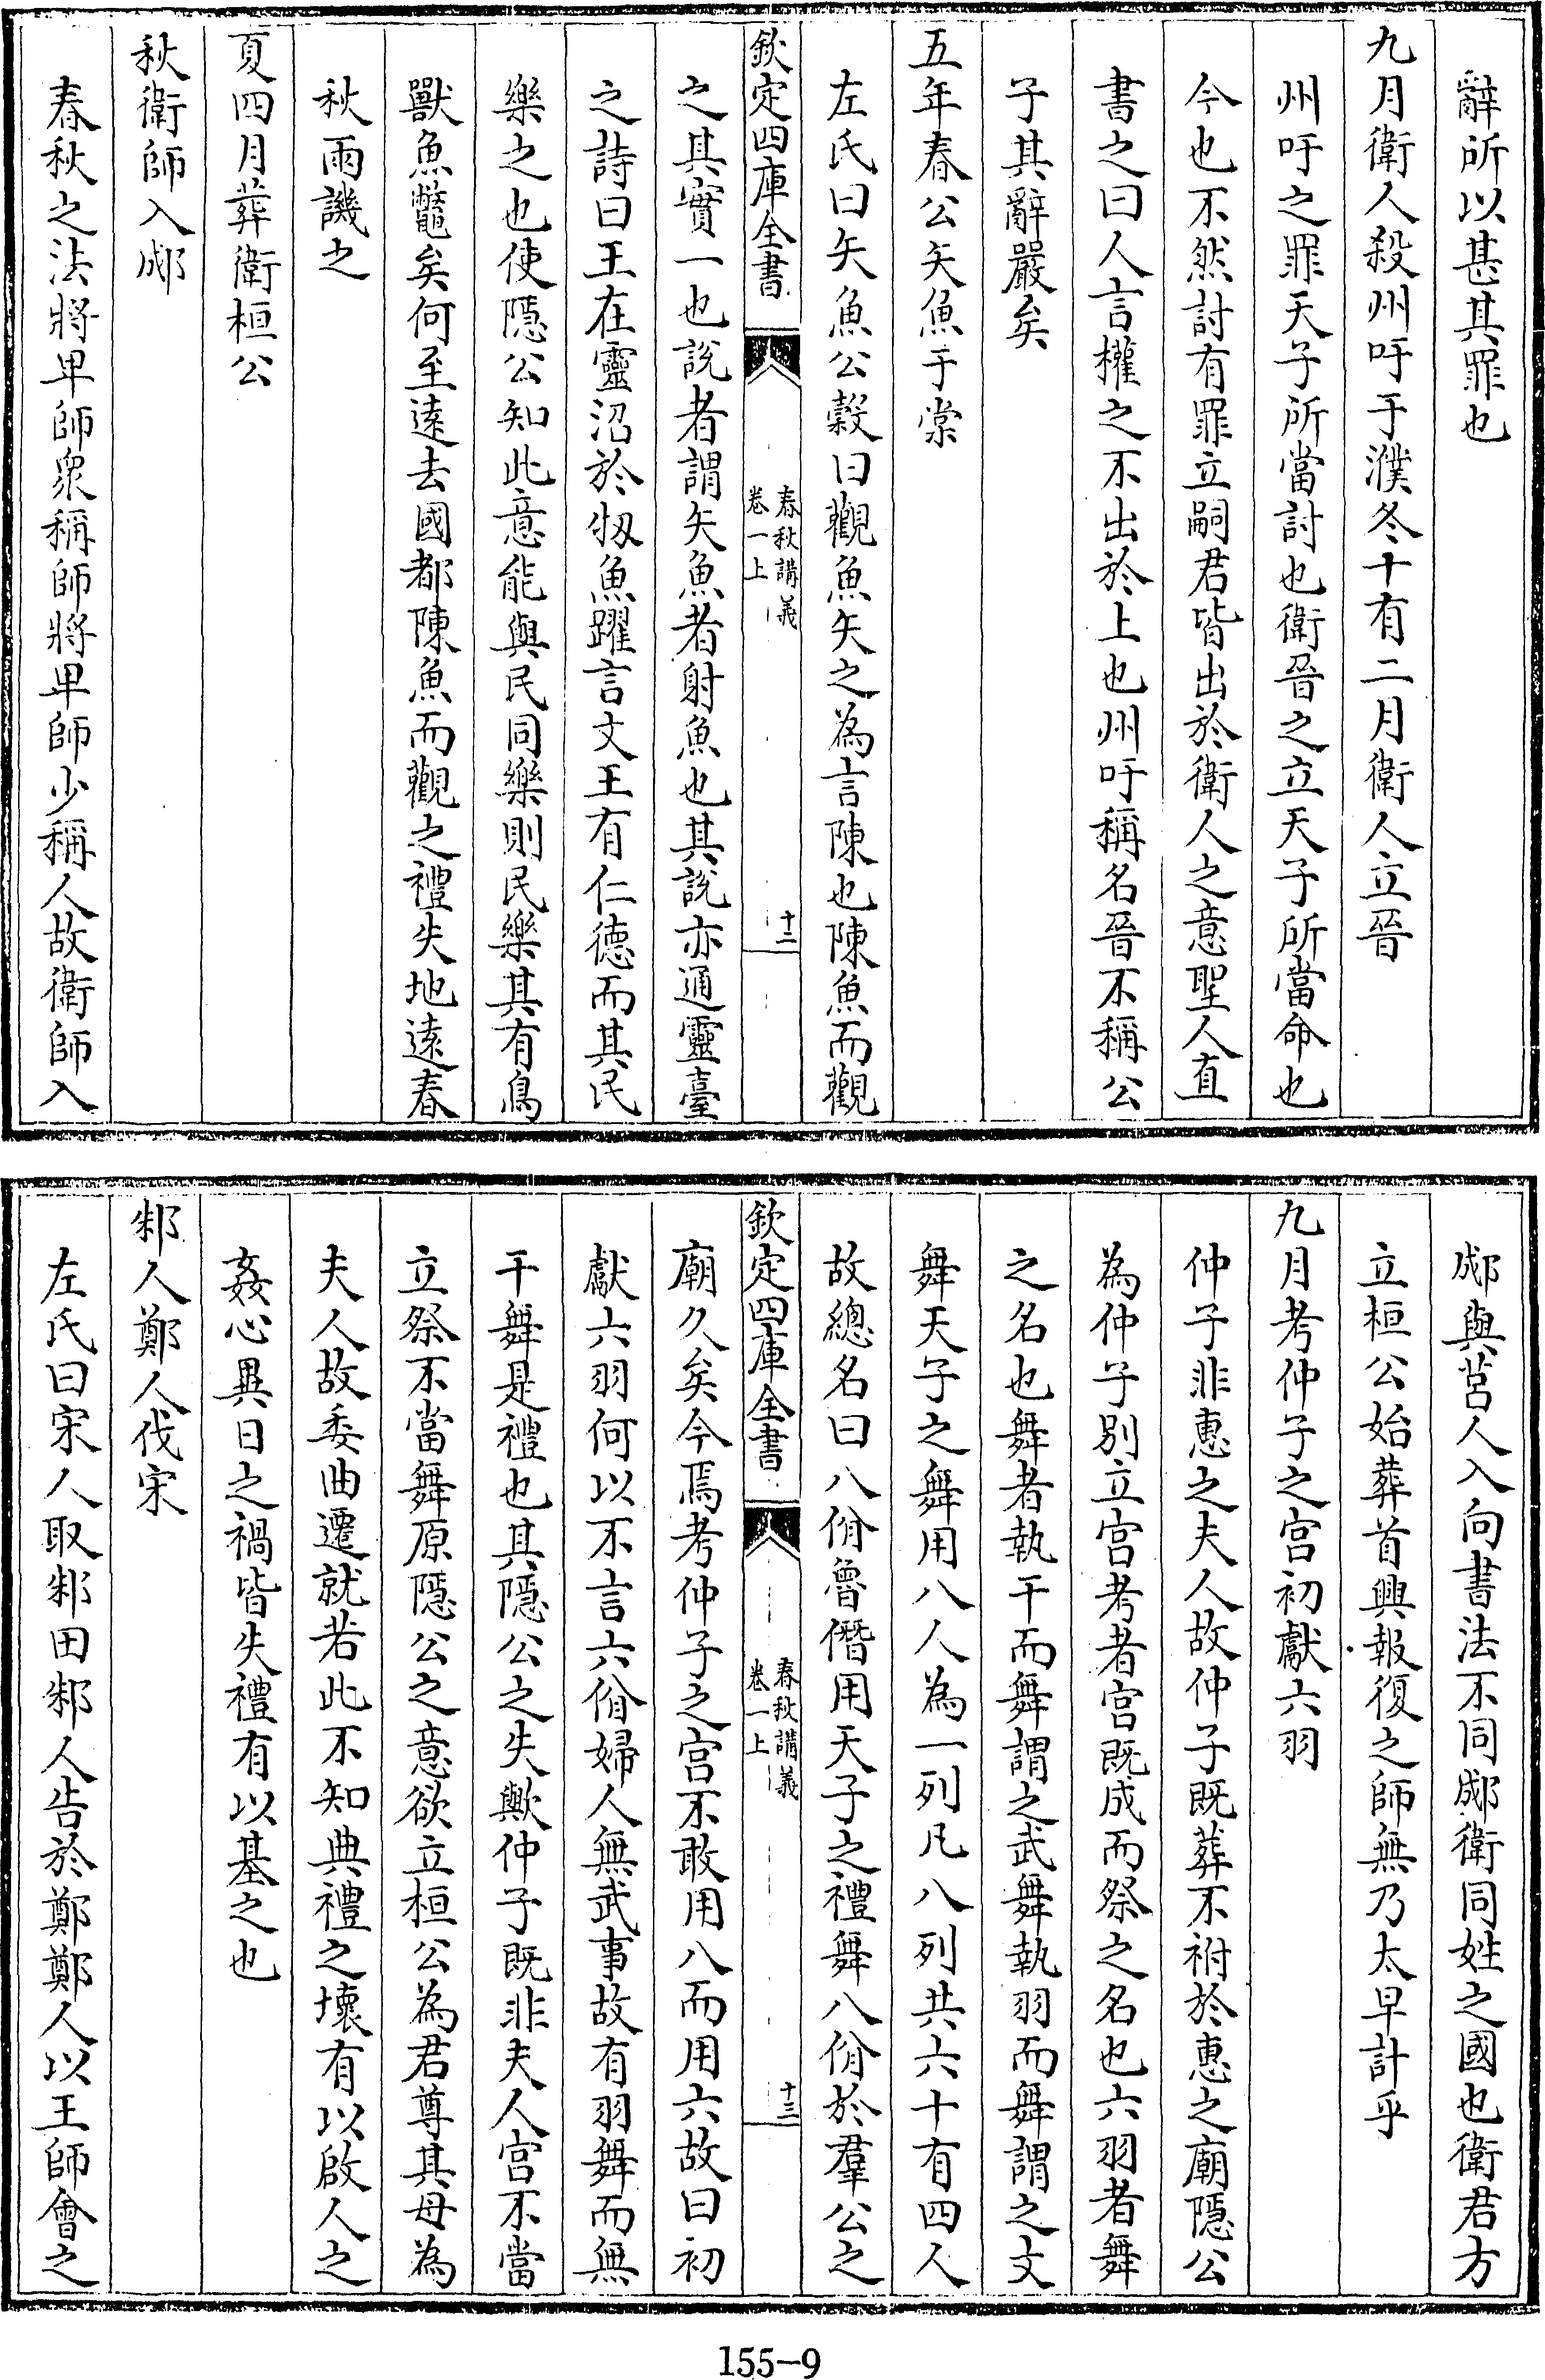 辭所以甚其罪也
九月衛人殺州吁于濮冬十有二月衛人立晉
州吁之罪天子所當討也衛晉之立天子所當命也
今也不然討有罪立嗣君皆出於衛人之意聖人直
書之曰人言權之不出於上也州吁稱名晉不稱公
子其辭嚴矣
五年春公矢魚于棠
左氏曰矢魚公穀曰觀魚矢之為言陳也陳魚而觀
欽定四庫全書
春秋講義
卷一上
十二
之其實一也說者謂矢魚者射魚也其說亦通靈臺
之詩曰王在靈沼於牣魚躍言文王有仁德而其民
樂之也使隱公知此意能與民同樂則民樂其有鳥
獸魚鼈矣何至遠去國都陳魚而觀之禮失地遠春
秋雨譏之
夏四月葬衛桓公
秋衛師入郕
春秋之法將卑師衆稱師將卑師少稱人故衛師入
郕與莒人入向書法不同郕衛同姓之國也衛君方
立桓公始葬首興報復之師無乃太早計乎
九月考仲子之宫初獻六羽
仲子非惠之夫人故仲子既葬不祔於惠之廟隱公
為仲子別立宫考者宫既成而祭之名也六羽者舞
之名也舞者執干而舞謂之武舞執羽而舞謂之文
舞天子之舞用八人為一列凡八列共六十有四人
故總名曰八佾魯僭用天子之禮舞八佾於羣公之
欽定四庫全書
春秋講義
卷一上
十三
廟久矣今焉考仲子之宫不敢用八而用六故曰初
獻六羽何以不言六佾婦人無武事故有羽舞而無
干舞是禮也其隱公之失歟仲子既非夫人宫不當
立祭不當舞原隱公之意欲立桓公為君尊其母為
夫人故委曲遷就若此不知典禮之壞有以啟人之
姦心異日之禍皆失禮有以基之也
邾人鄭人伐宋
左氏曰宋人取邾田邾人告於鄭鄭人以王師會之
155-9